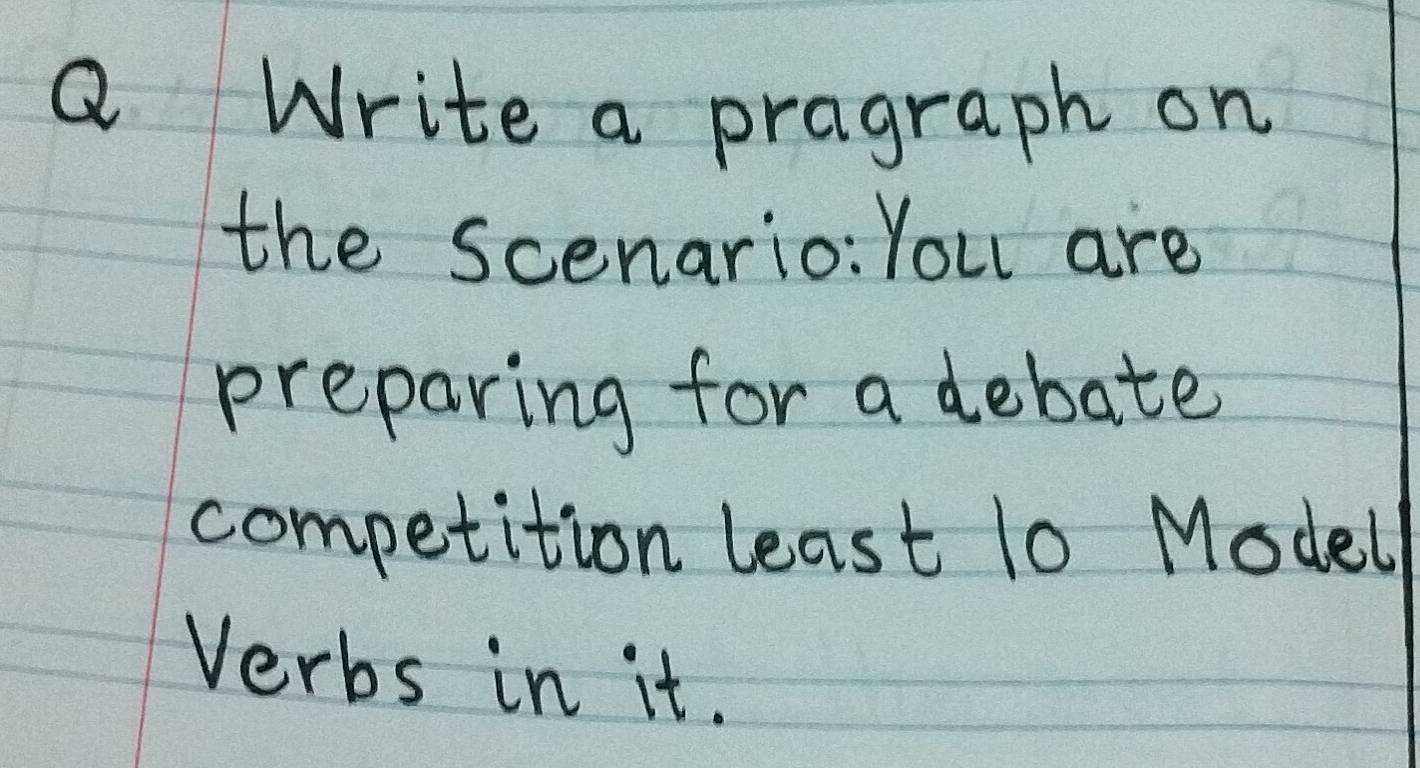 Q Write a pragraph on
the Scenario: You are
preparing for a debate
competition least 10 Model
Verbs in it.